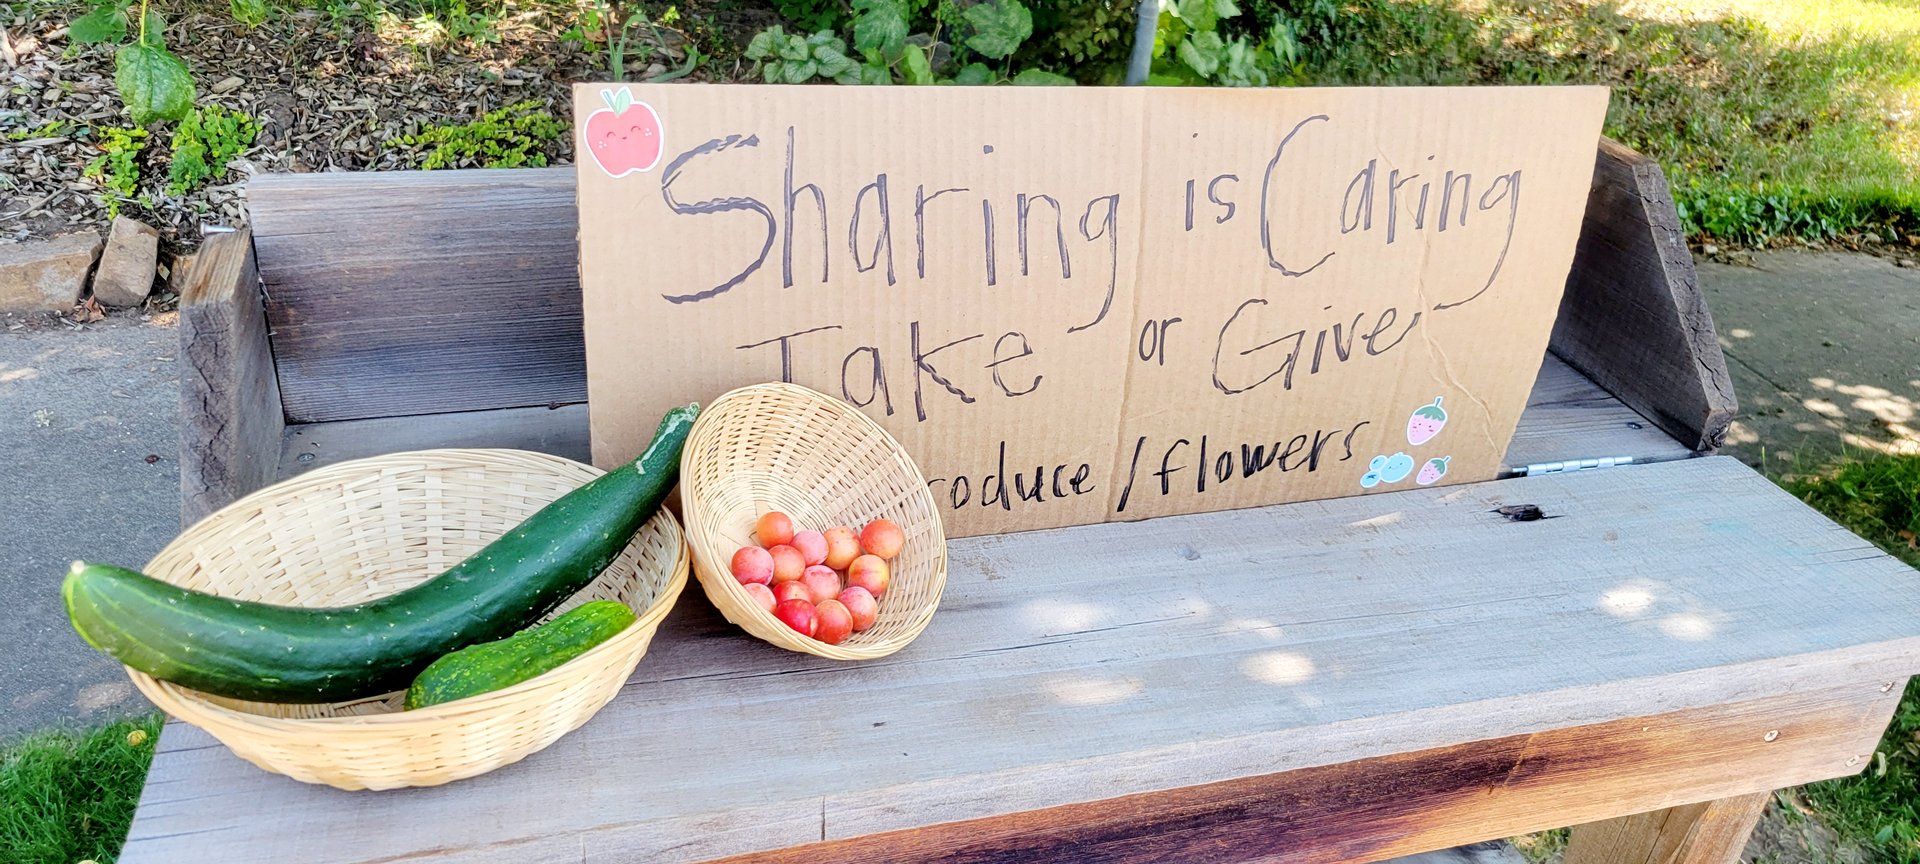 Sharing is Caring
Take or Give
roduce/flowers